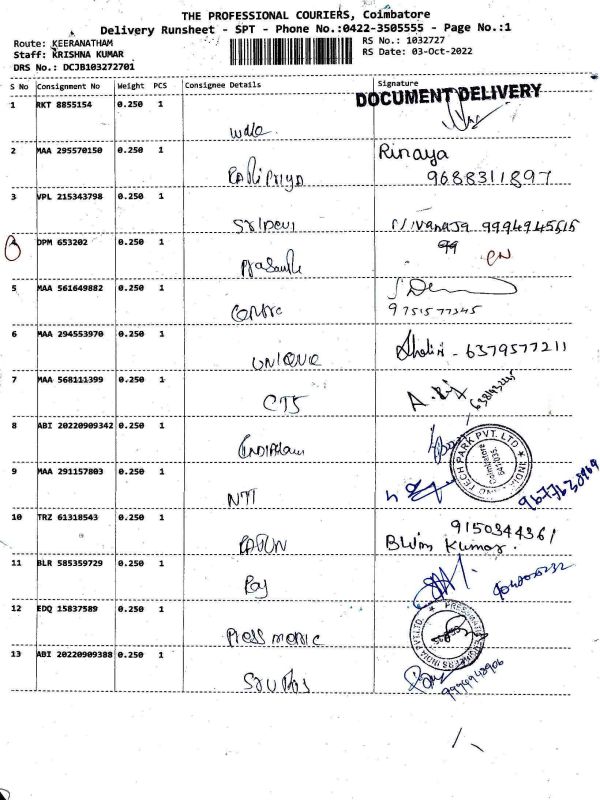 THE PROFESSIONAL COURIERS, Coimbatore
Delivery Runsheet - SPT - Phone No.:0422-3505555 - Page No.:1
Route: KEERANATHAM RS No.: 1032727
Staff: KRISHNA KUMAR RS Date: 03-Oct-2022
DRS No.: DCJB103272701
S No Consignment No Weight PCS Consignee Details Signature
DOCUMENT DELIVERY
1 RKT 8855154 0.250 1
2 MAA 295570150 0.250 1 Rinaya
9688311897
3 VPL 215343798 0.250 1 Sridevi 9994945615
4 DPM 653202 0.250 1 Prasanth
5 MAA 561649882 0.250 1
9751577345
6 MAA 294553970 0.250 1 UNIQUE Shalini - 6379577211
7 MAA 568111399 0.250 1 CTS
8 ABI 20220909342 0.250 1
TECH PARK PVT. LTD
Coimbatore
641035
9 MAA 291157803 0.250 1 NTT 9677638969
10 TRZ 61318543 0.250 1 9150344361
Kumar.
11 BLR 585359729 0.250 1 Raj
12 EDQ 15837589 0.250 1 Pressmatic
INDIA PVT LTD
13 ABI 20220909388 0.250 1 9994948906